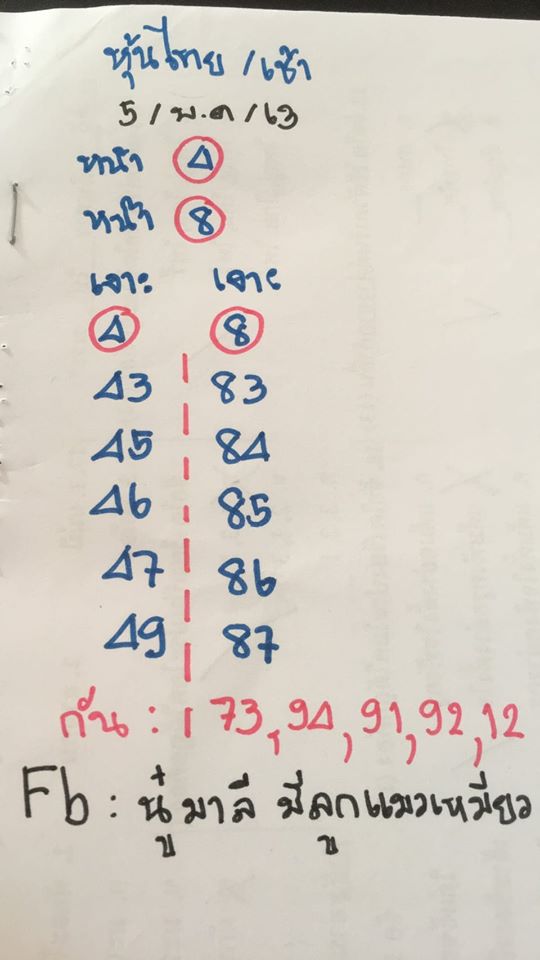 หุ้นไทย/เช้า
5/พ.ค/63
หน้า 4
หน้า 8
เจาะ เจาะ
4 8
43 83
45 84
46 85
47 86
49 87
กัน: 73, 94, 91, 92, 12
Fb: นู๋มาลี มีลูกแมวเหมียว